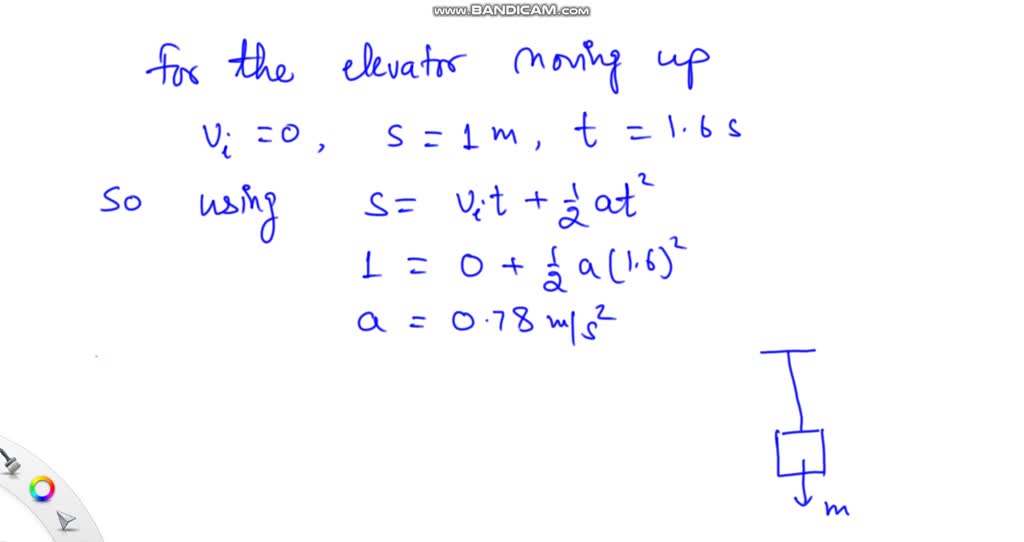 www.BANDICAM.com
For the elevator moving up
vᵢ = 0, s = 1 m, t = 1.6 s
So using s = vᵢt + ½ at²
1 = 0 + ½ a(1.6)²
a = 0.78 m/s²
m